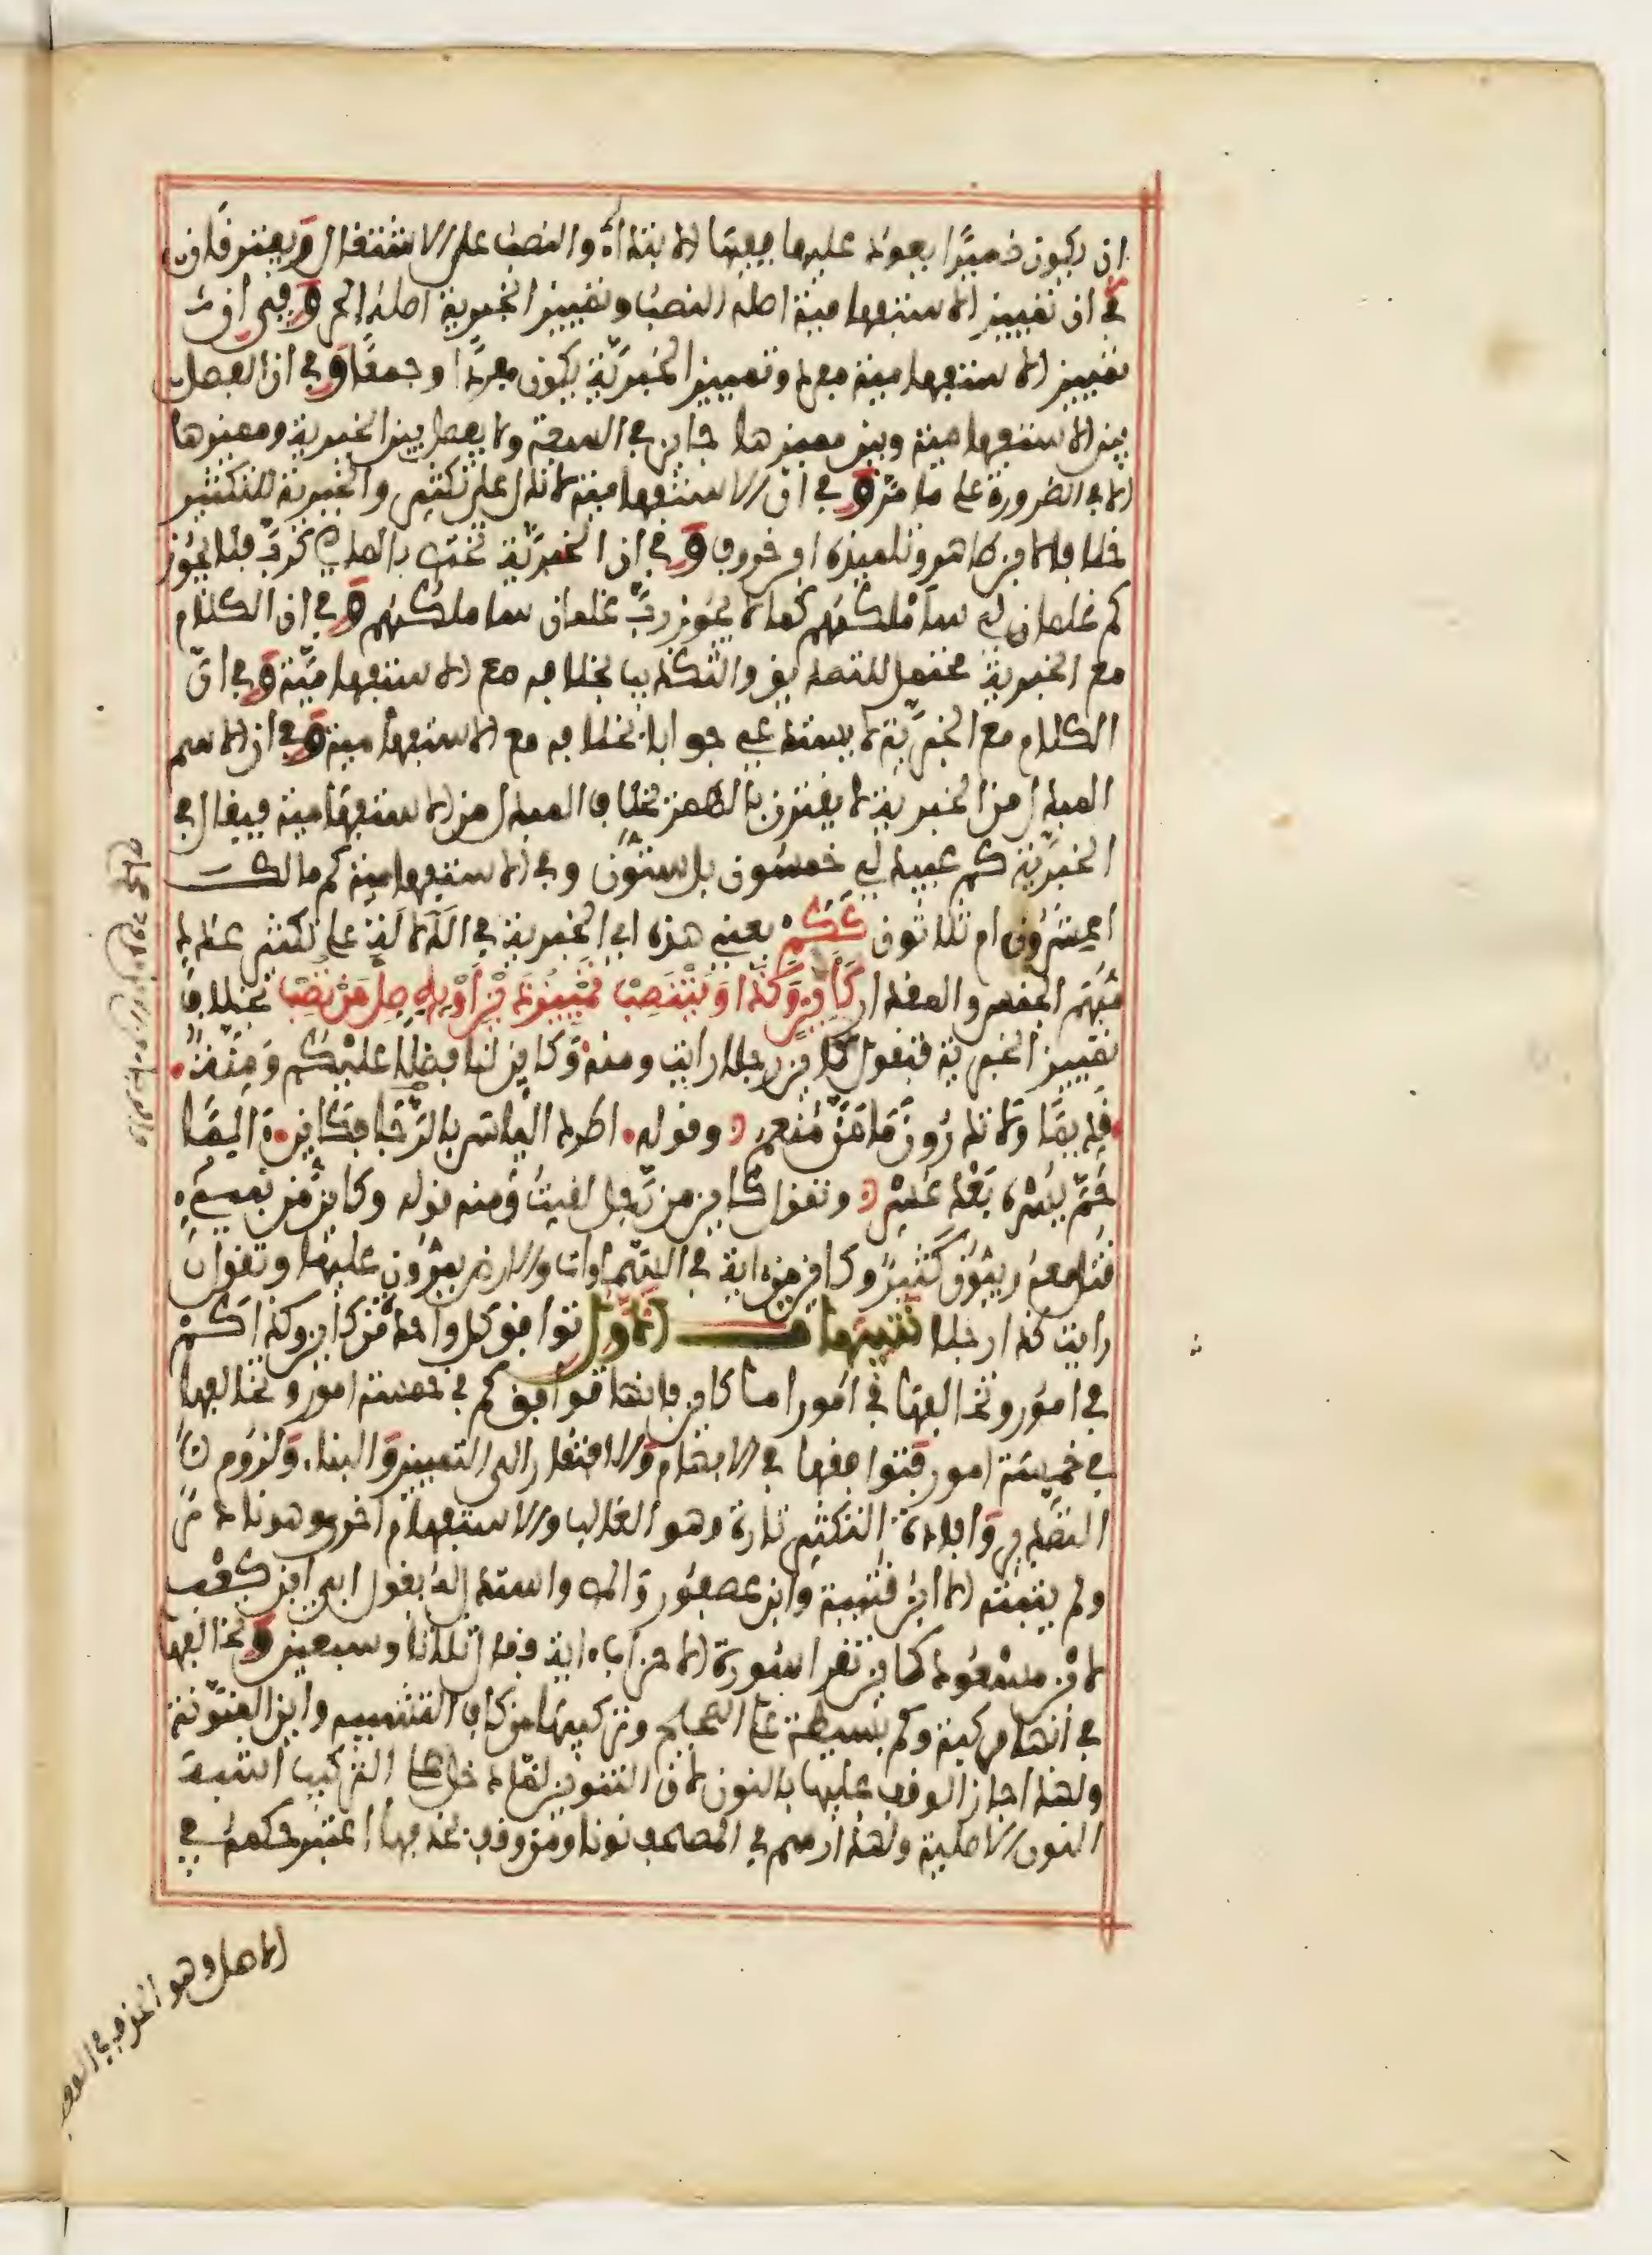 ان يكون ضميرا يعود عليها ففيها الابتداء والنصب على الاشتغال ويفترقان
في ان تمييز الاستفهامية اصله النصب وتمييز الخبرية اصله الجر وفي ان
تمييز الاستفهامية مفرد وتمييز الخبرية يكون مفردا وجمعا وفي ان الفصل
بين الاستفهامية وبين مميزها جايز في السعة ولا يفصل بين الخبرية ومميزها
الا في الضرورة على ما مر وفي ان الاستفهامية لا تدل على تكثير والخبرية للتكثير
خلافا لابن طاهر وتلميذه ابن خروف وفي ان الخبرية تختص بالماضي كرب فلا يجوز
كم غلمان لي سأملكهم كما لا يجوز رب غلمان سأملكهم وفي ان الكلام
مع الخبرية محتمل للتصديق والتكذيب بخلافه مع الاستفهامية وفي ان
الكلام مع الخبرية لا يستدعي جوابا بخلافه مع الاستفهامية وفي ان الاسم
المبدل من الخبرية لا يقترن بالهمز بخلاف المبدل من الاستفهامية فيقال في
الخبرية كم عبيد لي خمسون بل ستون وفي الاستفهامية كم مالك
اعشرون ام ثلاثون ككم يعني هذه اي الخبرية في الدلالة على تكثير عدد
مبهم الجنس والمقدار كأين وكذا وينتصب تمييز ذين او به صل من تصب بخلاف
تمييز الخبرية فتقول كأين رجلا رايت ومنه وكاين لنا فضلا عليكم ومنة
قديما ولا تدرون ما من منعم وقوله اطرد الياس بالرجا فكأين ءالما
حم يسره بعد عسر وتقول كاين من رجل لقيت ومنه قوله وكاين من نبيء
قتل معه ربيون كثير وكاين من اية في السماوات والارض يمرون عليها وتقول
رايت كذا رجلا تنبيهات الاول توافق كل واحد من كأين وكذا كم
في امور وتخالفها في امور اما كاين فانها توافق كم في خمسة امور وتخالفها
في خمسة امور فتوافقها في الابهام والافتقار الى التمييز والبناء ولزوم
التصدير وافادة التكثير تارة وهو الغالب والاستفهام اخرى وهو نادر
ولم يثبته الا ابن قتيبة وابن عصفور وابن مالك واستدل له بقول ابي ابن كعب
لابن مسعود كاين تقرا سورة الاحزاب اية فقال ثلاثا وسبعين وتخالفها
في انها مركبة وكم بسيطة على الصحيح وتركيبها من كاف التشبيه واين المنونة
ولهذا جاز الوقف عليها بالنون لان التنوين لما دخل في التركيب اشبه
النون الاصلية ولهذا رسم في المصحف نونا ومن وقف بحذفها اعتبر حكمه في
الاصل وهو الحذف في الوقف